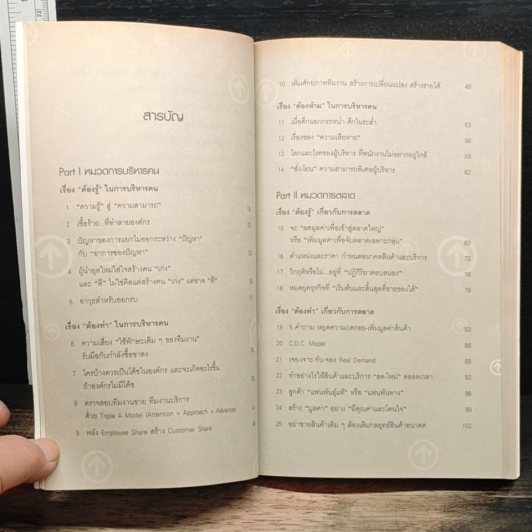 สารบัญ
Part I หมวดการบริหารคน
เรื่อง "ต้องรู้" ในการบริหารคน
1 "ความรู้" สู่ "ความสามารถ"
2 เชื้อร้าย...ที่ทำลายองค์กร
3 ปัญหาของการแยกไม่ออกระหว่าง "ปัญหา"
กับ "อาการของปัญหา"
4 ผู้นำยุคใหม่ใส่ใจสร้างคน "เก่ง"
และ "ดี" ไม่ใช่คิดแต่สร้างคน "เก่ง" แต่ขาด "ดี"
5 อาวุธสำหรับออกรบ
เรื่อง "ต้องทำ" ในการบริหารคน
6 ความเสี่ยง "ใช้ทักษะเดิม ๆ ของทีมงาน"
รับมือกับกำลังซื้อขาลง
7 ใครบ้างควรเป็นโค้ชในองค์กร และจะเกิดอะไรขึ้น
ถ้าองค์กรไม่มีโค้ช
8 ตรวจสอบทีมงานขาย ทีมงานบริการ
ด้วย Triple A Model (Attention > Approach > Advance)
9 พลัง Employee Share สร้าง Customer Share
10 เพิ่มศักยภาพทีมงาน สร้างการเปลี่ยนแปลง สร้างรายได้ 49
เรื่อง "ต้องห้าม" ในการบริหารคน
11 เมื่อศึกนอกกระหน่ำ ศึกในระส่ำ 53
12 เรื่องของ "ความเสียหาย" 56
13 โลกและโรคของผู้บริหาร ที่พนักงานไม่อยากอยู่ใกล้ 59
14 "ลังโยน" ความสามารถพิเศษผู้บริหาร 62
Part II หมวดการตลาด
เรื่อง "ต้องรู้" เกี่ยวกับการตลาด
15 จะ "ลดมูลค่าเพื่อเข้าสู่ตลาดใหญ่"
หรือ "เพิ่มมูลค่าเพื่อจับตลาดเฉพาะกลุ่ม" 69
16 ตำแหน่งและราคา กำหนดอนาคตสินค้าและบริการ 72
17 วิกฤติหรือไม่...อยู่ที่ "ปฏิกิริยาตอบสนอง" 76
18 หมดยุคธุรกิจที่ "เริ่มต้นและสิ้นสุดที่ขายของได้" 79
เรื่อง "ต้องทำ" เกี่ยวกับการตลาด
19 5 คำถาม หยุดความถดถอย-เพิ่มมูลค่าสินค้า 83
20 C.D.C. Model 86
21 เจอ-เจาะ-จับ-จอง Real Demand 89
22 ทำอย่างไรให้สินค้าและบริการ "สด-ใหม่" ตลอดเวลา 92
23 ลูกค้า "แฟนพันธุ์แท้" หรือ "แฟนพันทาง" 96
24 สร้าง "มูลค่า" อย่าง "มีคุณค่าและโดนใจ" 99
25 อย่าขายสินค้าเดิม ๆ ต้องเติมกลยุทธ์สินค้าอนาคต 102